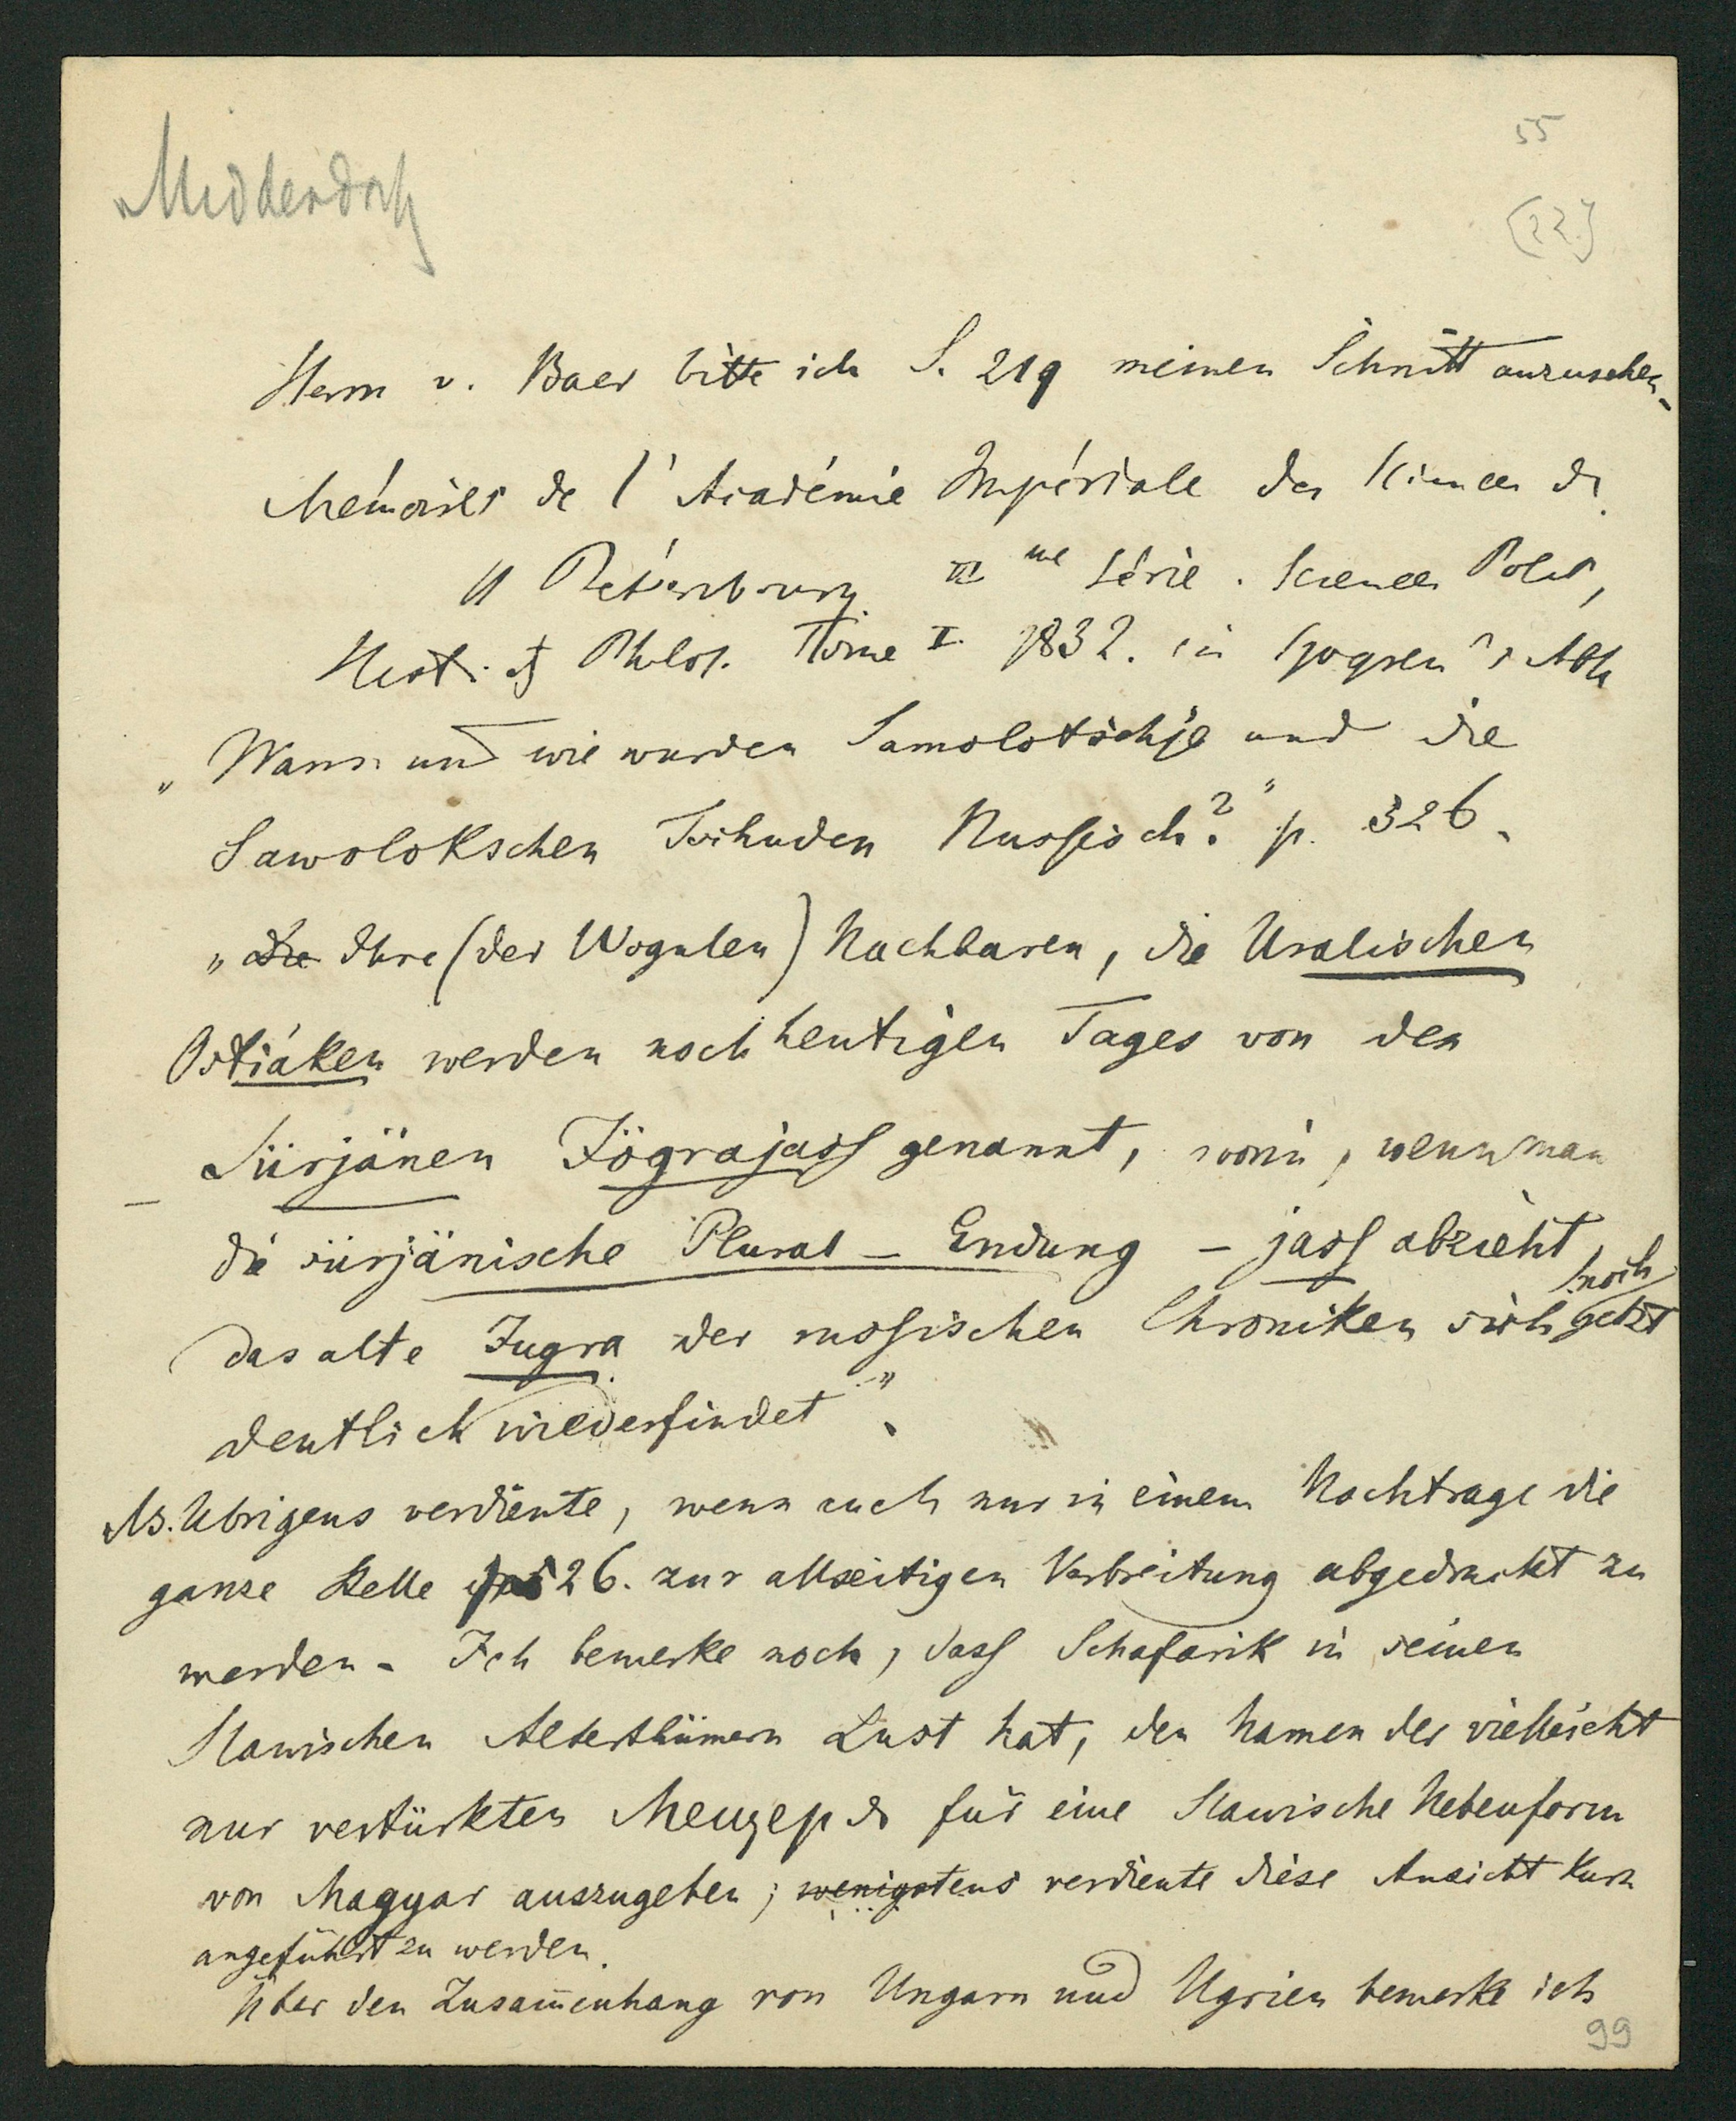 Middendorff
55
(22)
Herrn v. Baer bitte ich S. 219 meinen Schnitt anzusehen.
Mémoires de l'Académie Impériale des Sciences de
St Pétersbourg VI me Série. Sciences Polit,
Hist. et Philol. Tome I. 1832. in Sjögren's Abh
„Wann und wie wurden Sawolotschje und die
Sawolokschen Tschuden Russisch?" p. 326.
„Die Ihre (der Wogulen) Nachbaren, die Uralischen
Ostiaken werden noch heutigen Tages von den
Sürjänen Jögrajass genannt, worin, wenn man
die sürjänische Plural-Endung - jass abzieht,
das alte Jugra der russischen Chroniken sich noch jetzt
deutlich wiederfindet".
NB. Übrigens verdiente, wenn auch nur in einem Nachtrage die
ganze Stelle 526. zur allseitigen Verbreitung abgedruckt zu
werden. Ich bemerke noch, dass Schafarik in seinen
Slawischen Alterthümern Lust hat, den Namen der vielleicht
nur vertürkten Мещеря für eine Slawische Nebenform
von Magyar auszugeben; wenigstens verdiente diese Ansicht kurz
angeführt zu werden.
Über den Zusam̄enhang von Ungarn und Ugrien bemerke ich
99